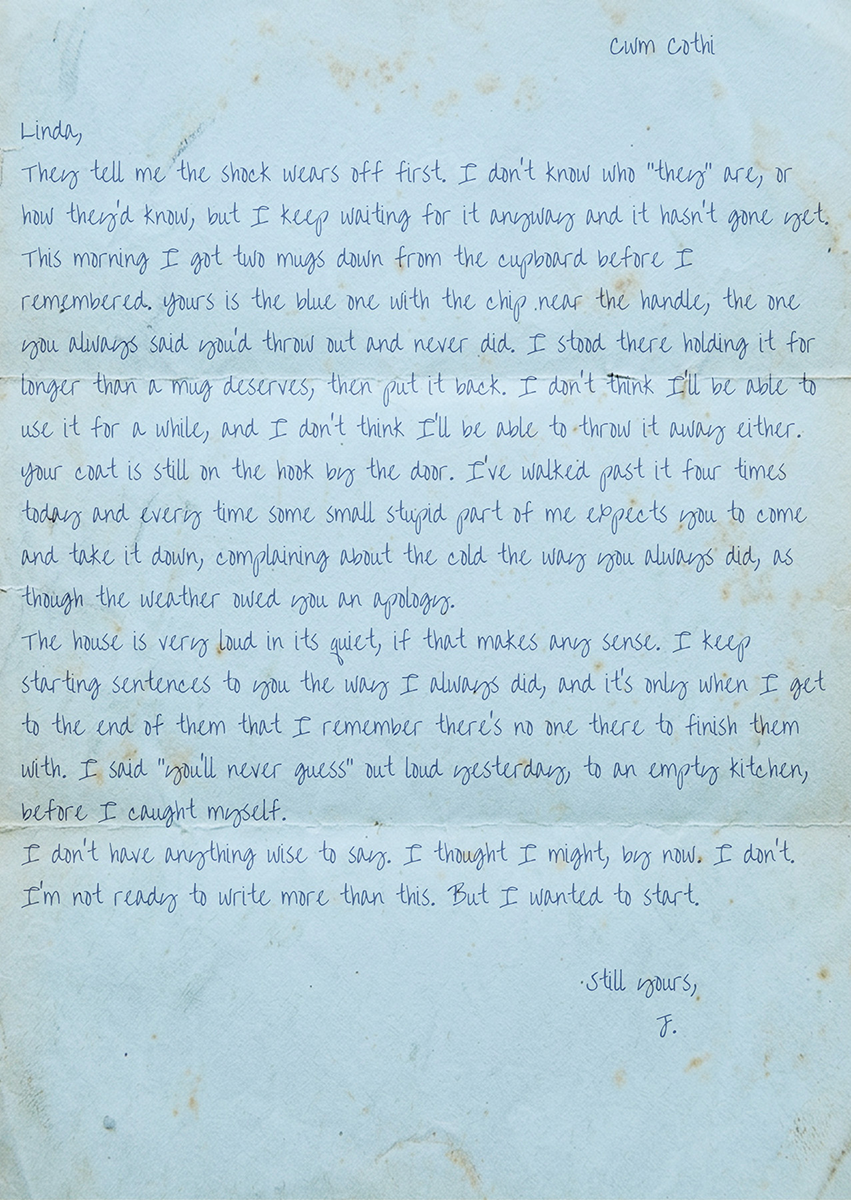 Cwm Cothi
Linda,
They tell me the shock wears off first. I don't know who "they" are, or
how they'd know, but I keep waiting for it anyway and it hasn't gone yet.
This morning I got two mugs down from the cupboard before I
remembered. Yours is the blue one with the chip near the handle, the one
you always said you'd throw out and never did. I stood there holding it for
longer than a mug deserves, then put it back. I don't think I'll be able to
use it for a while, and I don't think I'll be able to throw it away either.
Your coat is still on the hook by the door. I've walked past it four times
today and every time some small stupid part of me expects you to come
and take it down, complaining about the cold the way you always did, as
though the weather owed you an apology.
The house is very loud in its quiet, if that makes any sense. I keep
starting sentences to you the way I always did, and it's only when I get
to the end of them that I remember there's no one there to finish them
with. I said "you'll never guess" out loud yesterday, to an empty kitchen,
before I caught myself.
I don't have anything wise to say. I thought I might, by now. I don't.
I'm not ready to write more than this. But I wanted to start.
Still yours,
J.